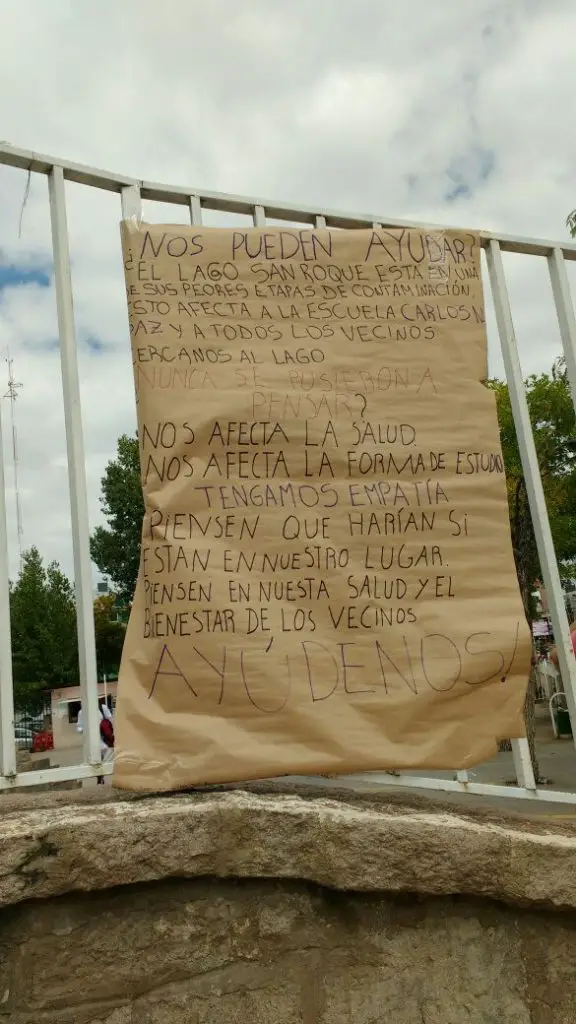 ¿NOS PUEDEN AYUDAR?
EL LAGO SAN ROQUE ESTA EN UNA
DE SUS PEORES ETAPAS DE CONTAMINACIÓN
ESTO AFECTA A LA ESCUELA CARLOS N
PAZ Y A TODOS LOS VECINOS
CERCANOS AL LAGO
¿NUNCA SE PUSIERON A
PENSAR?
NOS AFECTA LA SALUD.
NOS AFECTA LA FORMA DE ESTUDIO
TENGAMOS EMPATÍA
PIENSEN QUE HARÍAN SI
ESTAN EN NUESTRO LUGAR.
PIENSEN EN NUESTA SALUD Y EL
BIENESTAR DE LOS VECINOS
AYÚDENOS!